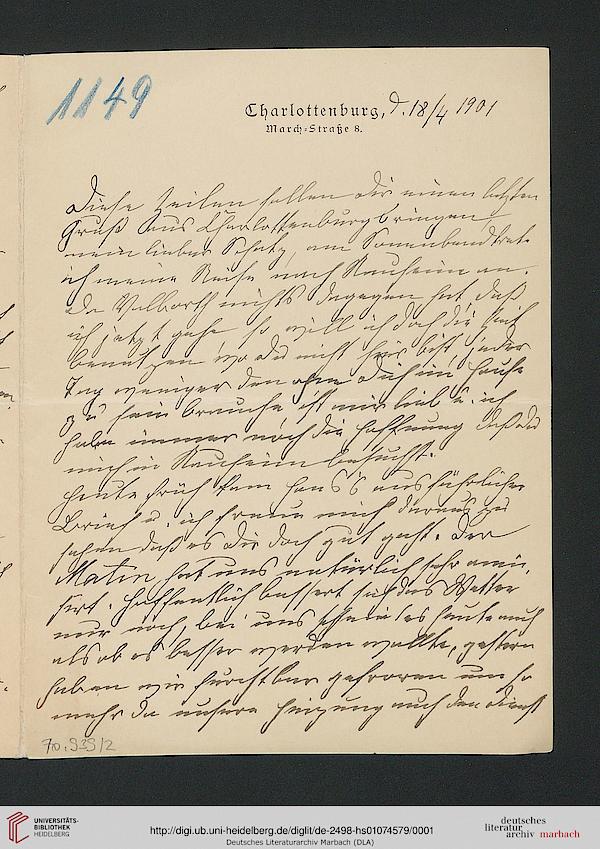 1149
Charlottenburg, d. 18/4 1901
March-Straße 8.
Diese Zeilen sollen dir einen letzten
Gruß aus Charlottenburg bringen,
mein lieber Schatz, am Sonnabend trete
ich meine Reise nach Nauheim an.
Da Valborth nichts dagegen hat, daß
ich jetzt gehe so will ich doch die Zeit
benutzen wo du nicht hier bist, jeder
Tag weniger den ohne dich im Hause
zu sein brauche ist mir lieb u. ich
habe immer noch die Hoffnung daß du
mich in Nauheim besuchst.
Heute früh kam Hans's ausführlicher
Brief u. ich freue mich daraus zu
sehen daß es dir doch gut geht. Der
Matin hat uns natürlich sehr amü-
sirt. Hoffentlich bessert sich das Wetter
nur noch, bei uns scheint es heute auch
als ob es besser werden wollte, gestern
haben wir furchtbar gefroren um so
mehr da unsere Heizung auch den Dienst
70.939/2
UNIVERSITÄTS-
BIBLIOTHEK
HEIDELBERG
http://digi.ub.uni-heidelberg.de/diglit/de-2498-hs01074579/0001
Deutsches Literaturarchiv Marbach (DLA)
deutsches
literatur
archiv marbach